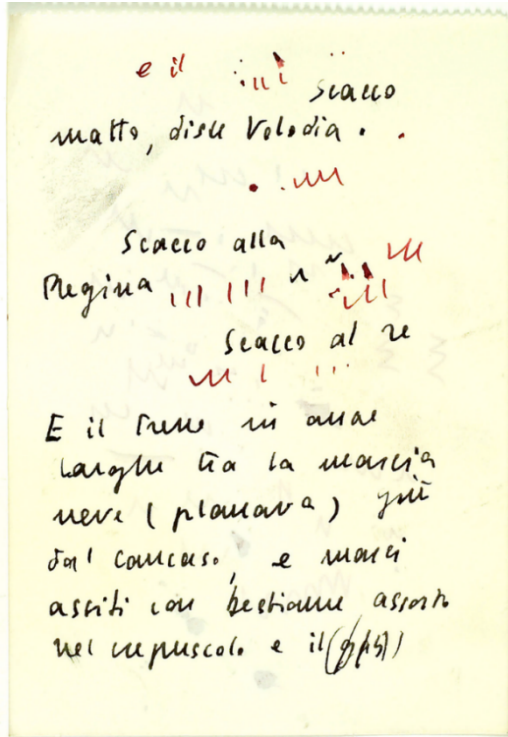 e il
Scacco
matto, disse Volodia.
Scacco alla
Regina
Scacco al re
E il treno in anse
larghe tra la marcia
neve (planava) giù
dal Caucaso, e marci
assiti con bestiame assorto
nel crepuscolo e il